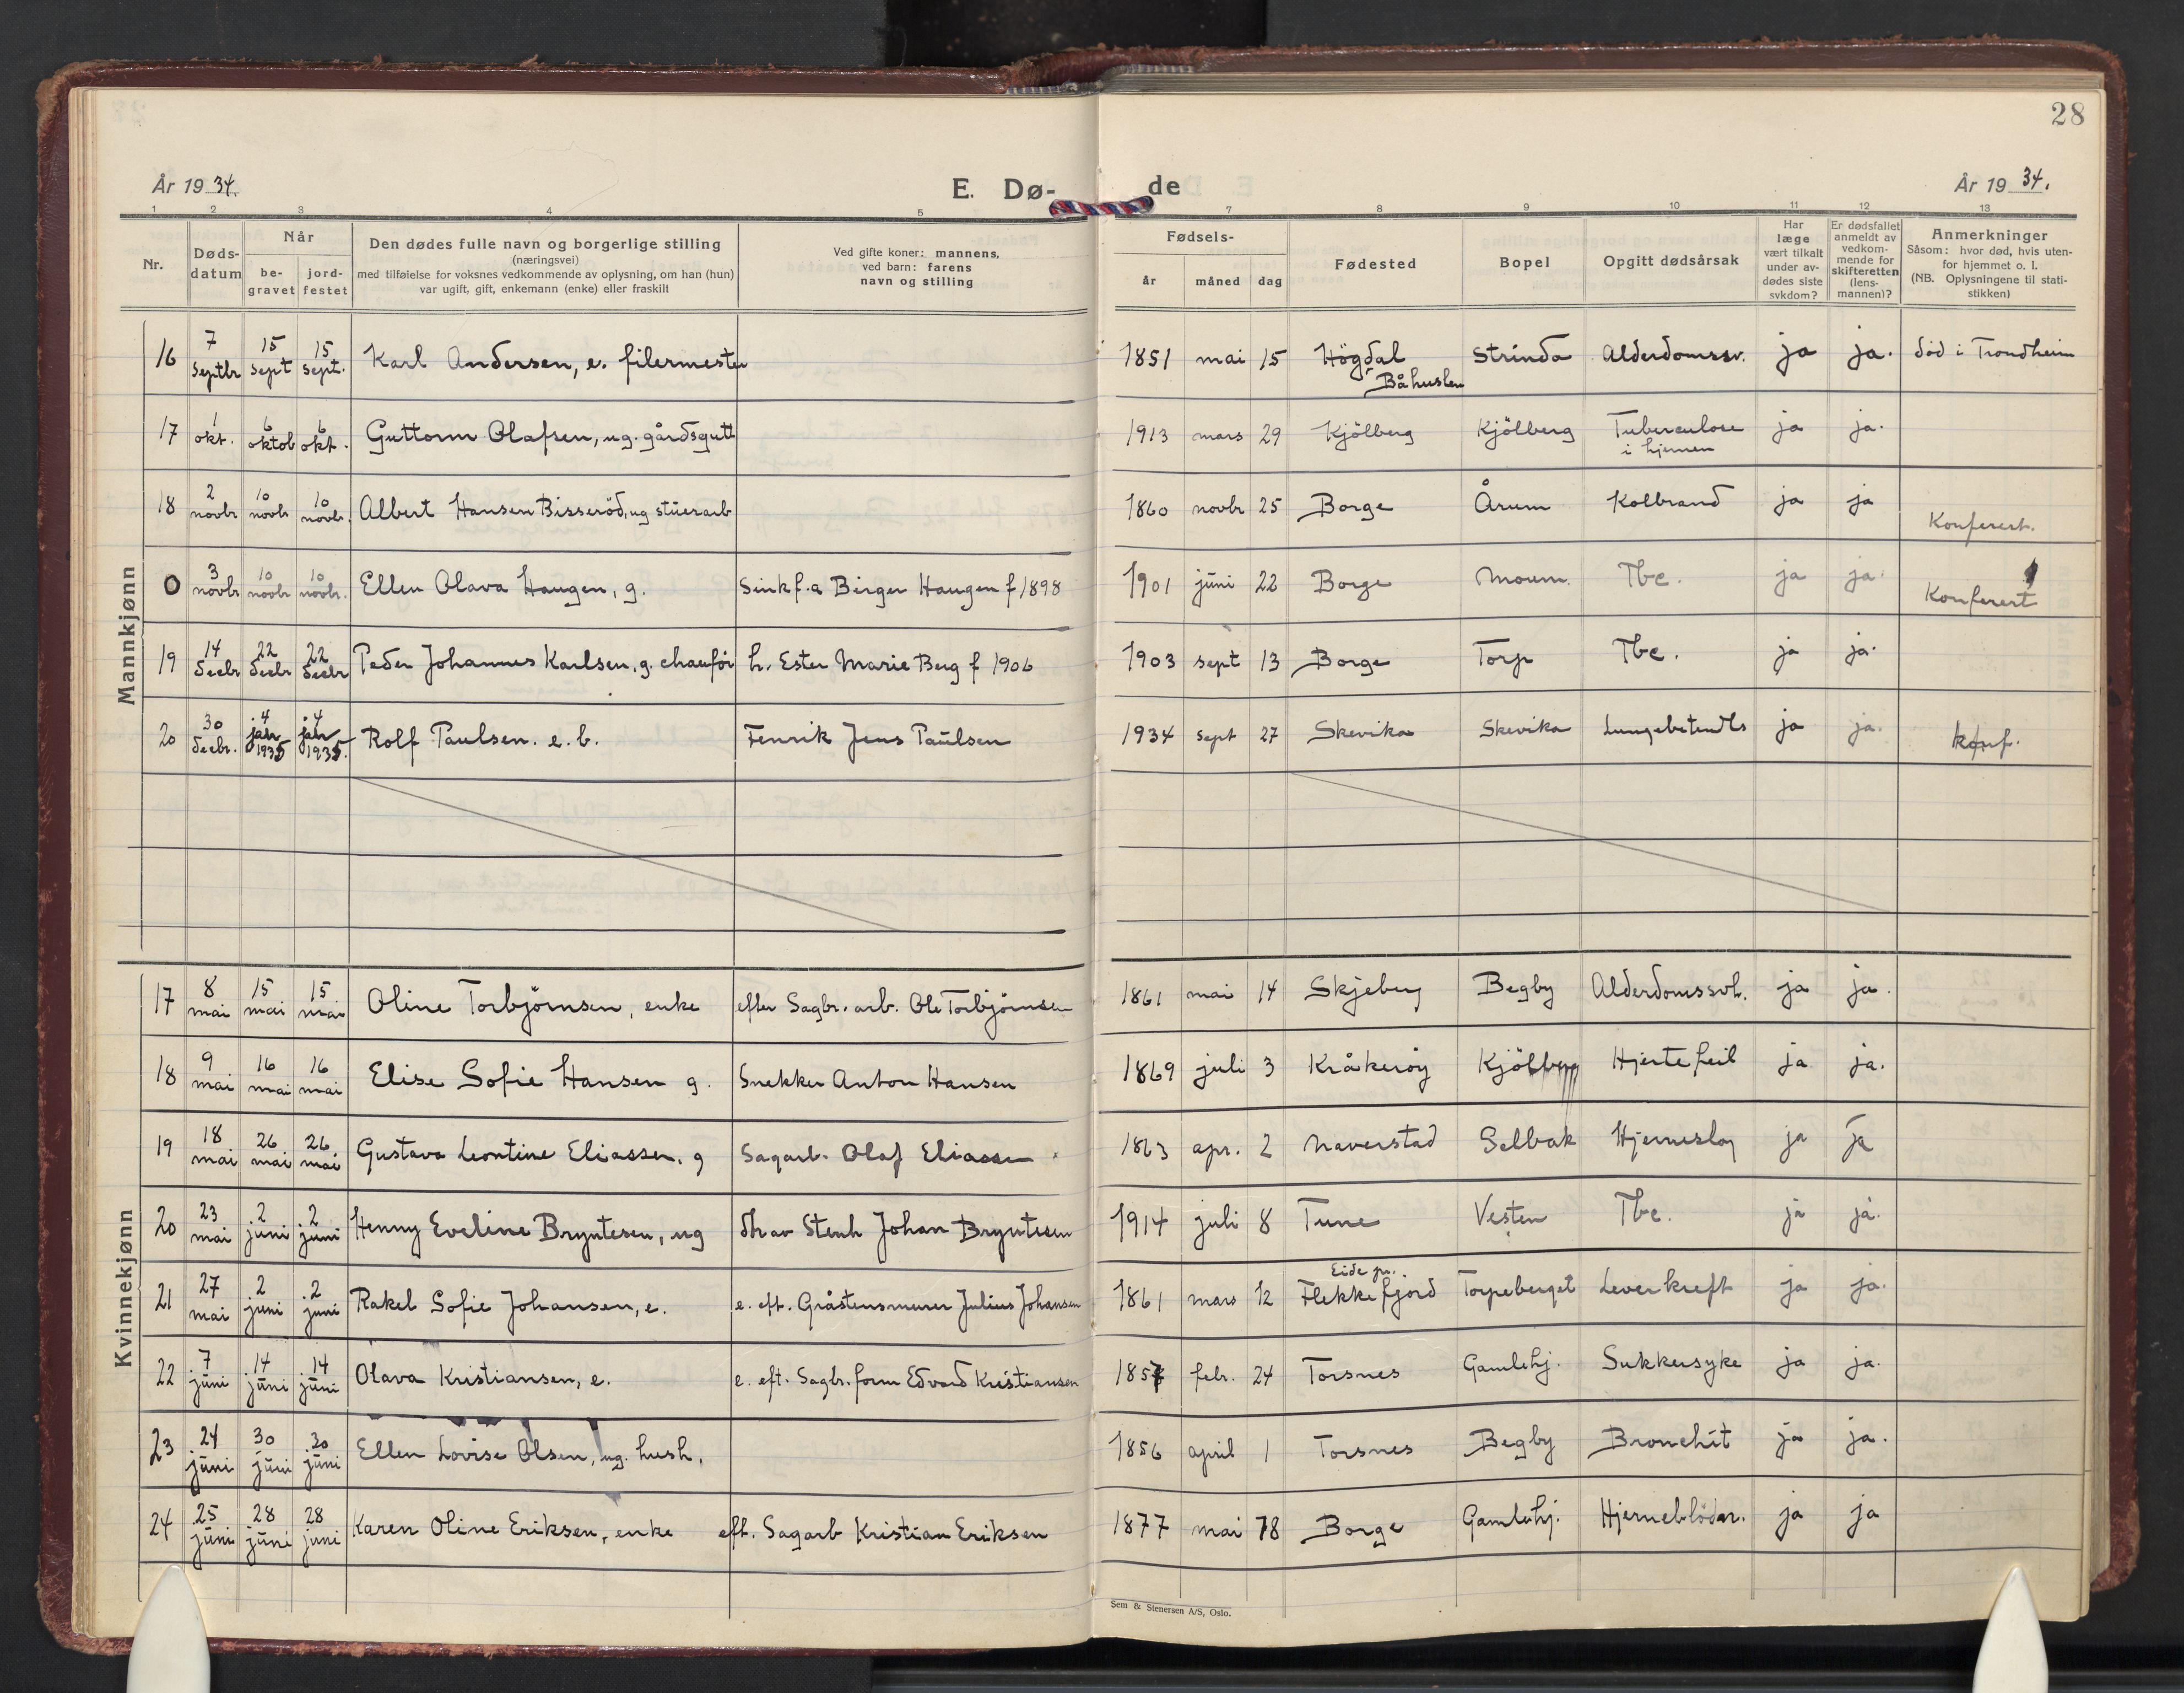 28
År 1934.
E. Dø-
de
År 1934.
1 2 3 4 5 7 8 9 10 11 12 13
Nr.
Døds-
datum
Når
be-
gravet
jord-
festet
Den dødes fulle navn og borgerlige stilling
(næringsvei)
med tilføielse for voksnes vedkommende av oplysning, om han (hun)
var ugift, gift, enkemann (enke) eller fraskilt
Ved gifte koner: mannens,
ved barn: farens
navn og stilling
Fødsels-
år måned dag
Fødested
Bopel
Opgitt dødsårsak
Har
læge
vært tilkalt
under av-
dødes siste
sykdom?
Er dødsfallet
anmeldt av
vedkom-
mende for
skifteretten
(lens-
mannen)?
Anmerkninger
Såsom: hvor død, hvis uten-
for hjemmet o. l.
(NB. Oplysningene til stati-
stikken)
Mannkjønn
16 7 Septbr 15 sept 15 sept. Karl Andersen, e. filermester 1851 mai 15 Högdal Båhuslen Strinda Alderdomssv. ja ja. död i Trondheim
17 1 okt. 6 oktob 6 okt. Guttorm Olafsen, ug. gårdsgutt 1913 mars 29 Kjölberg Kjölberg Tuberculose i hjernen ja ja.
18 2 novbr 10 novbr 10 novbr. Albert Hansen Bisseröd, ug stuerarb 1860 novbr 25 Borge Årum Kolbrand ja ja Konferert.
0 3 novbr 10 novbr 10 novbr. Ellen Olava Haugen, g. Sinkf.a Birger Haugen f 1898 1901 juni 22 Borge Moum. Tbc. ja ja. Konferert
19 14 decbr 22 decbr 22 decbr Peder Johannes Karlsen, g. chauför h. Ester Marie Berg f 1906 1903 sept 13 Borge Torp Tbc. ja ja.
20 30 decbr. 4 jabr 1935 4 jabr 1935. Rolf Paulsen. e. b. Fenrik Jens Paulsen 1934 sept 27 Skevika Skevika Lungebetendls ja ja. konf.
Kvinnekjønn
17 8 mai 15 mai 15 mai Oline Torbjörnsen, enke efter Sagbr. arb. Ole Torbjörnsen 1861 mai 14 Skjeberg Begby Alderdomssvh. ja ja.
18 9 mai 16 mai 16 mai Elise Sofie Hansen g. Snekker Anton Hansen 1869 juli 3 Kråkeröy Kjölberg Hjertefeil ja ja.
19 18 mai 26 mai 26 mai Gustava Leontine Eliassen. g Sagarb. Olaf Eliassen 1863 apr. 2 Naverstad Selbak Hjerneslag ja ja
20 23 mai 2 juni 2 juni Henny Eveline Bryntesen, ug dtr av Stenh Johan Bryntesen 1914 juli 8 Tune Vesten Tbc. ja ja.
21 27 mai 2 juni 2 juni Rakel Sofie Johansen, e. e. eft. Gråstensmurer Julius Johansen 1861 mars 12 Eide pr. Flekkefjord Torpeberget Leverkreft ja ja.
22 7 juni 14 juni 14 juni Olava Kristiansen, e. e. eft. Sagbr. form Edvard Kristiansen 1857 febr. 24 Torsnes Gamlehj. Sukkersyke ja ja.
23 24 juni 30 juni 30 juni Ellen Lovise Olsen, ug. hush. 1856 april 1 Torsnes Begby Bronchit ja ja.
24 25 juni 28 juni 28 juni Karen Oline Eriksen, enke eft. Sagarb Kristian Eriksen 1877 mai 78 Borge Gamlehj. Hjerneblödn. ja ja
Sem & Stenersen A/S, Oslo.